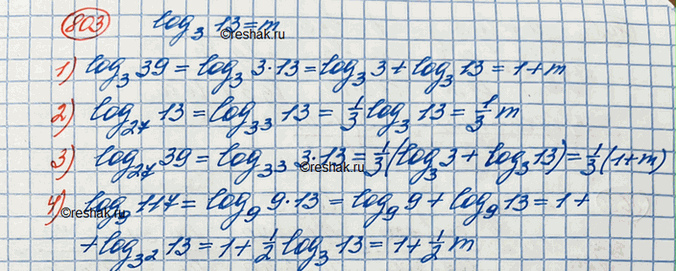 803 log₃ 13 = m
©reshak.ru
1) log₃ 39 = log₃ 3·13 = log₃ 3 + log₃ 13 = 1 + m
2) log₂₇ 13 = log₃³ 13 = 1/3 log₃ 13 = 1/3 m
3) log₂₇ 39 = log₃³ 3·13 = 1/3 (log₃ 3 + log₃ 13) = 1/3 (1 + m)
©reshak.ru
4) log₉ 117 = log₉ 9·13 = log₉ 9 + log₉ 13 = 1 +
©reshak.ru
+ log₃² 13 = 1 + 1/2 log₃ 13 = 1 + 1/2 m